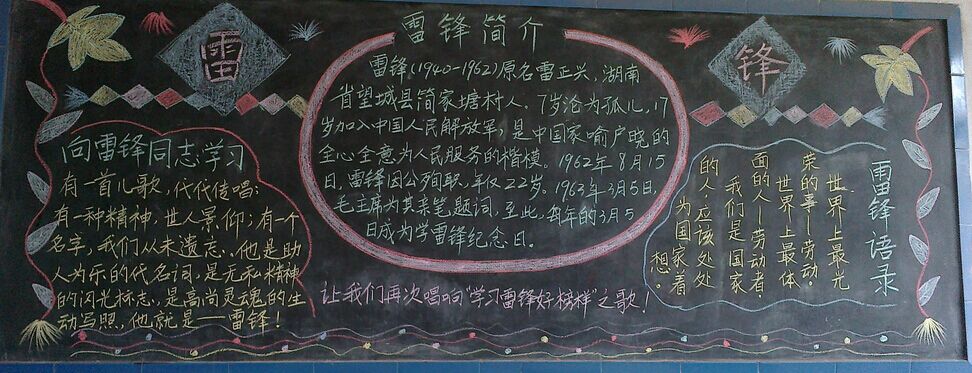 雷
锋
向雷锋同志学习
有一首儿歌，代代传唱：
有一种精神，世人景仰；有一个
名字，我们从未遗忘。他是助
人为乐的代名词，是无私精神
的闪光标志，是高尚灵魂的生
动写照，他就是——雷锋！
雷锋简介
雷锋(1940-1962)原名雷正兴，湖南
省望城县简家塘村人，7岁沦为孤儿，17
岁加入中国人民解放军，是中国家喻户晓的
全心全意为人民服务的楷模。1962年8月15
日，雷锋因公殉职，年仅22岁。1963年3月5日，
毛主席为其亲笔题词，至此，每年的3月5
日成为学雷锋纪念日。
让我们再次唱响“学习雷锋好榜样”之歌！
雷锋语录
世界上最光
荣的事—劳动。
世界上最体
面的人—劳动者。
我们是国家
的人，应该处处
为国家着
想。